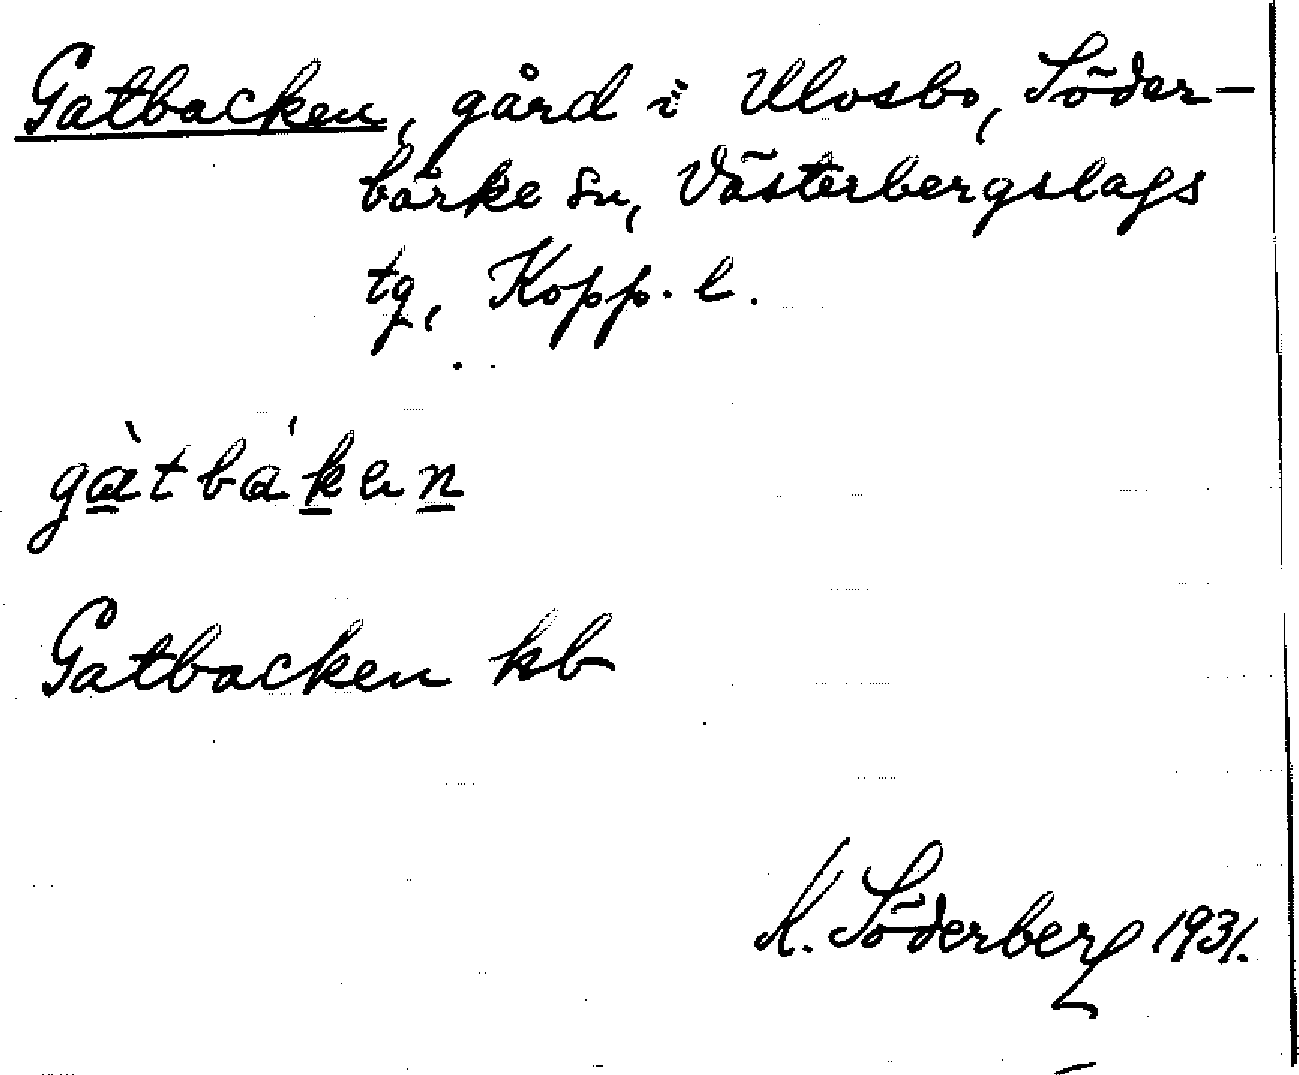 Gatbacken, gård i Ulvsbo, Söder-
bärke sn, Västerbergslags
tg, Kopp. l.
gàtbákan
Gatbacken kb
K. Söderberg 1931.